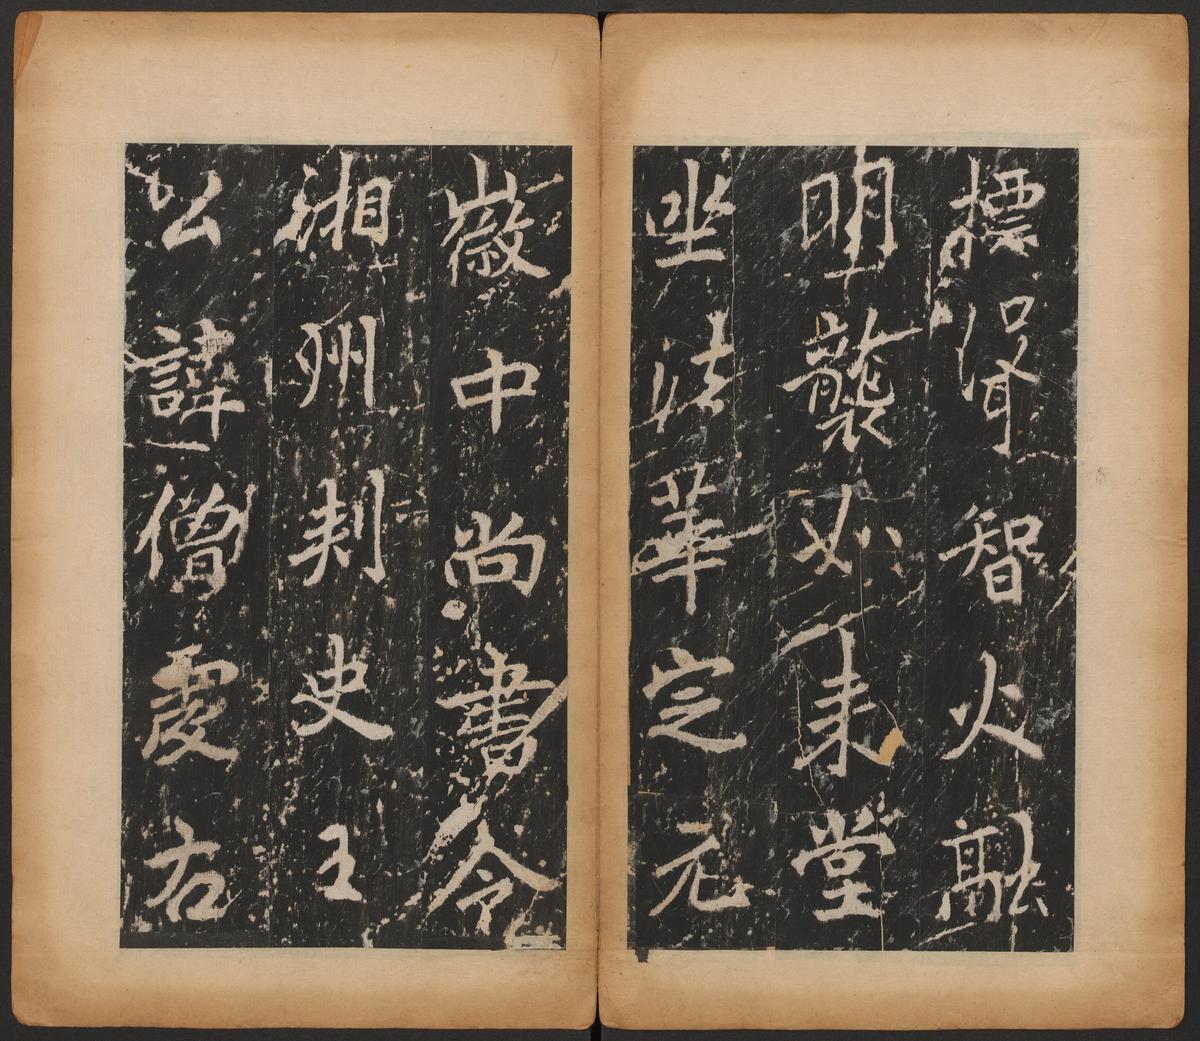 標智火融
明襲如来堂
坐法華定元
徽中尚書令
湘州刾史王
公諱僧虔右